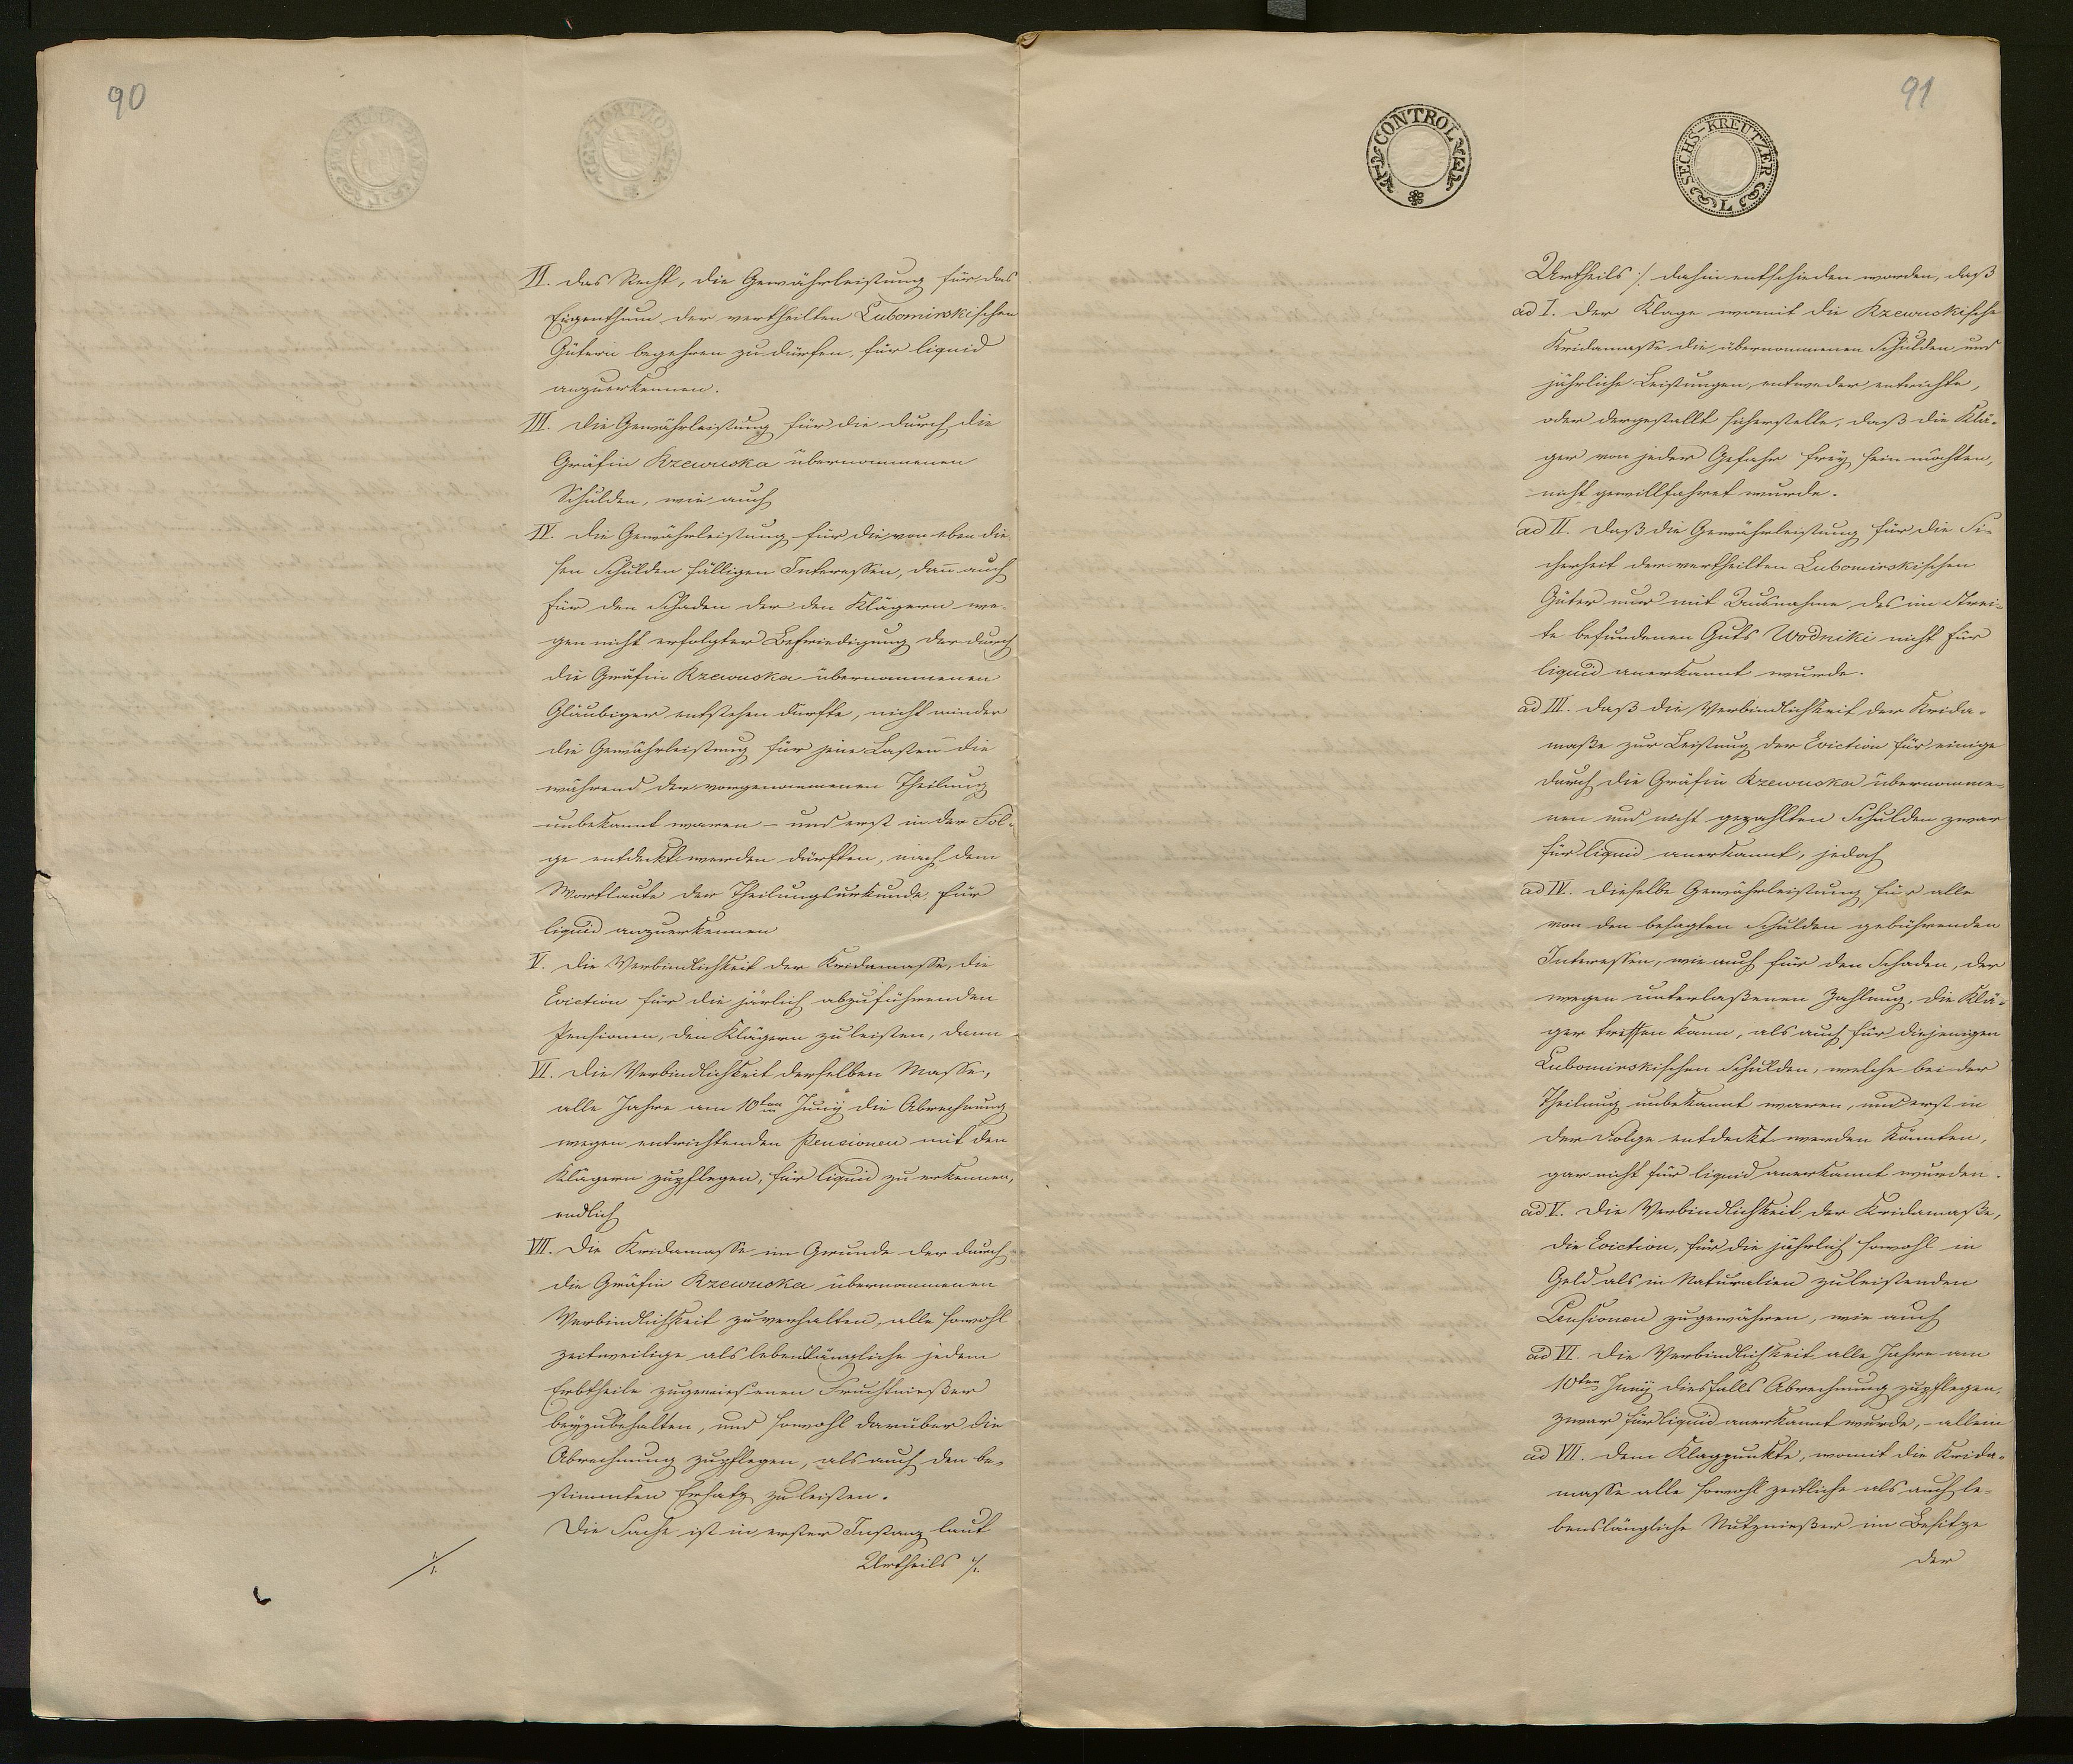 90
II. das Recht, die Gewährleistung für das
Eigenthum der vertheilten Lubomirskischen
Gütern begehren zu dürfen, für liquid
anzuerkennen.
III. die Gewährleistung für die durch die
Gräfin Rzewuska übernommenen
Schulden, wie auch
IV. die Gewährleistung für die von eben die
sen Schulden fälligen Interessen, dann auch
für den Schaden der den Klägern we-
gen nicht erfolgter Befriedigung der durch
die Gräfin Rzewuska übernommenen
Gläubiger entstehen dürfte, nicht minder
die Gewährleistung für jene Lasten die
während der vorgenommenen Theilung
unbekannt waren – und erst in der Fol-
ge entdeckt werden dürften, nach dem
Wortlaute der Theilungsurkunde für
liquid anzuerkennen
V. die Verbindlichkeit der Kridamasse, die
Eviction für die järlich abzuführenden
Pensionen, den Klägern zu leisten, dann
VI. die Verbindlichkeit derselben Masse,
alle Jahre am 10ten Juny die Abrechnung
wegen entrichtenden Pensionen mit den
Klägern zupflegen, für liquid zu erkennen,
endlich
VII. Die Kridamasse im Grunde der durch
die Gräfin Rzewuska übernommenen
Verbindlichkeit zuverhalten, alle sowohl
zeitweilige als lebenslängliche jedem
Erbtheile zugewiesenen Fruchtnießer
beyzubehalten, und sowohl darüber die
Abrechnung zupflegen, als auch den be-
stimmten Ersatz zu leisten.
Die Sache ist in erster Instanz laut
Urtheils ./.
./.
91
CONTROLE
SECHS-KREUTZER L
Urtheils ./. dahin entschieden worden, daß
ad I. der Klage womit die Rzewuskische
Kridamasse die übernommenen Schulden und
jährliche Leistungen, entweder entrichte,
oder dergestallt sicherstelle, daß die Klä-
ger von jeder Gefahr frey sein möchten,
nicht gewillfahret wurde.
ad II. daß die Gewährleistung für die Si-
cherheit der vertheilten Lubomirskischen
Güter nur mit Ausnahme des im Strei-
te befundenen Guts Wodniki nicht für
liquid anerkannt wurde.
ad III. daß die Verbindlichkeit der Krida-
maße zur Leistung der Eviction für einige
durch die Gräfin Rzewuska übernomme-
nen und nicht gezahlten Schulden zwar
für liquid anerkannt, jedoch
ad IV. dieselbe Gewährleistung für alle
von den besagten Schulden gebührenden
Interessen, wie auch für den Schaden, der
wegen unterlaßenen Zahlung, die Klä-
ger treffen kann, als auch für diejenigen
Lubomirskischen Schulden, welche bei der
Theilung unbekannt waren, und erst in
der Folge entdeckt werden könnten,
gar nicht für liquid anerkannt wurden.
ad V. die Verbindlichkeit der Kridamaße,
die Eviction, für die jährlich sowohl in
Geld als in Naturalien zuleistenden
Pensionen zugewähren, wie auch
ad VI. die Verbindlichkeit alle Jahre am
10ten Juny diesfalls Abrechnung zupflegen,
zwar für liquid anerkannt wurde, – allein
ad VII. dem Klagpunkte, womit die Krida-
masse alle sowohl zeitliche als auch le-
benslängliche Nutznießer im Besitze
der